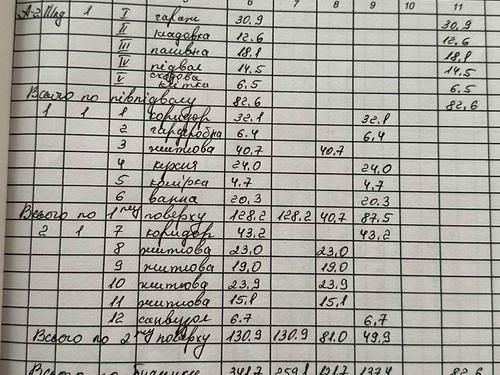 5 6 7 8 9 10 11
А-2 Шпд 1 I гараж 30,9 30,9
II кладовка 12,6 12,6
III паливна 18,1 18,1
IV підвал 14,5 14,5
V сходова клітка 6,5 6,5
Всього по півпідвалу 82,6 82,6
1 1 1 коридор 32,1 32,1
2 гардеробна 6,4 6,4
3 житлова 40,7 40,7
4 кухня 24,0 24,0
5 комірка 4,7 4,7
6 ванна 20,3 20,3
Всього по 1му поверху 128,2 128,2 40,7 87,5
2 1 7 коридор 43,2 43,2
8 житлова 23,0 23,0
9 житлова 19,0 19,0
10 житлова 23,9 23,9
11 житлова 15,1 15,1
12 санвузол 6,7 6,7
Всього по 2му поверху 130,9 130,9 81,0 49,9
Всього по будинку 341,7 259,1 121,7 137,4 82,6